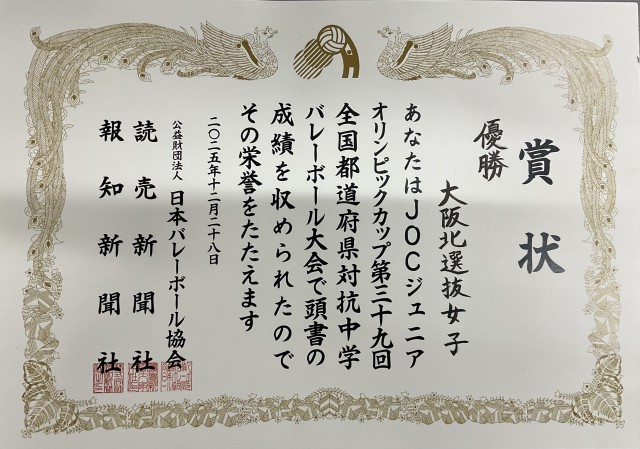 賞状
優勝
大阪北選抜女子
あなたはJOCジュニア
オリンピックカップ第三十九回
全国都道府県対抗中学
バレーボール大会で頭書の
成績を収められたので
その栄誉をたたえます
二〇二五年十二月二十八日
公益財団法人 日本バレーボール協会
読売新聞社
報知新聞社